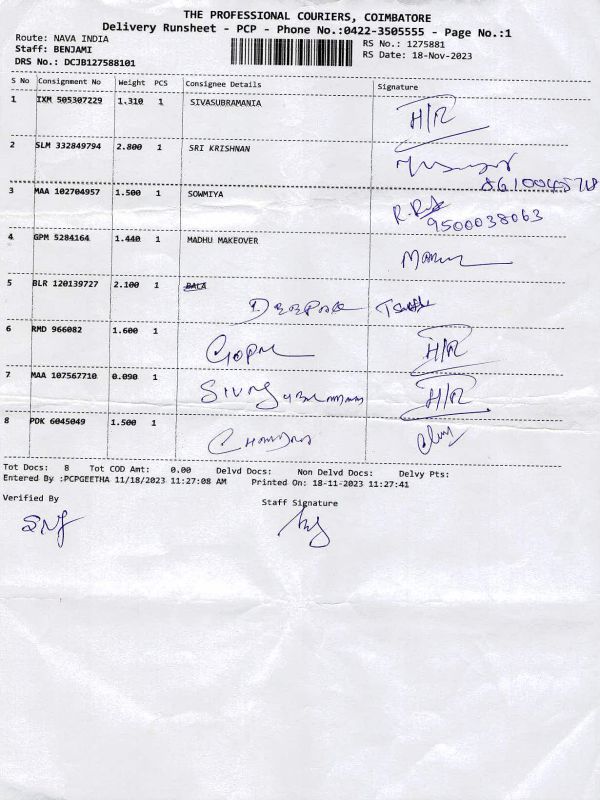 THE PROFESSIONAL COURIERS, COIMBATORE
Delivery Runsheet - PCP - Phone No.:0422-3505555 - Page No.:1
Route: NAVA INDIA RS No.: 1275881
Staff: BENJAMI RS Date: 18-Nov-2023
DRS No.: DCJB127588101
S No Consignment No Weight PCS Consignee Details Signature
1 IXM 505307229 1.310 1 SIVASUBRAMANIA H/R
2 SLM 332849794 2.800 1 SRI KRISHNAN
3 MAA 102704957 1.500 1 SOWMIYA
9500038063
4 GPM 5284164 1.440 1 MADHU MAKEOVER
5 BLR 120139727 2.100 1 BALA
6 RMD 966082 1.600 1 H/R
7 MAA 107567710 0.090 1 H/R
8 PDK 6045049 1.500 1
Tot Docs: 8 Tot COD Amt: 0.00 Delvd Docs: Non Delvd Docs: Delvy Pts:
Entered By :PCPGEETHA 11/18/2023 11:27:08 AM Printed On: 18-11-2023 11:27:41
Verified By Staff Signature